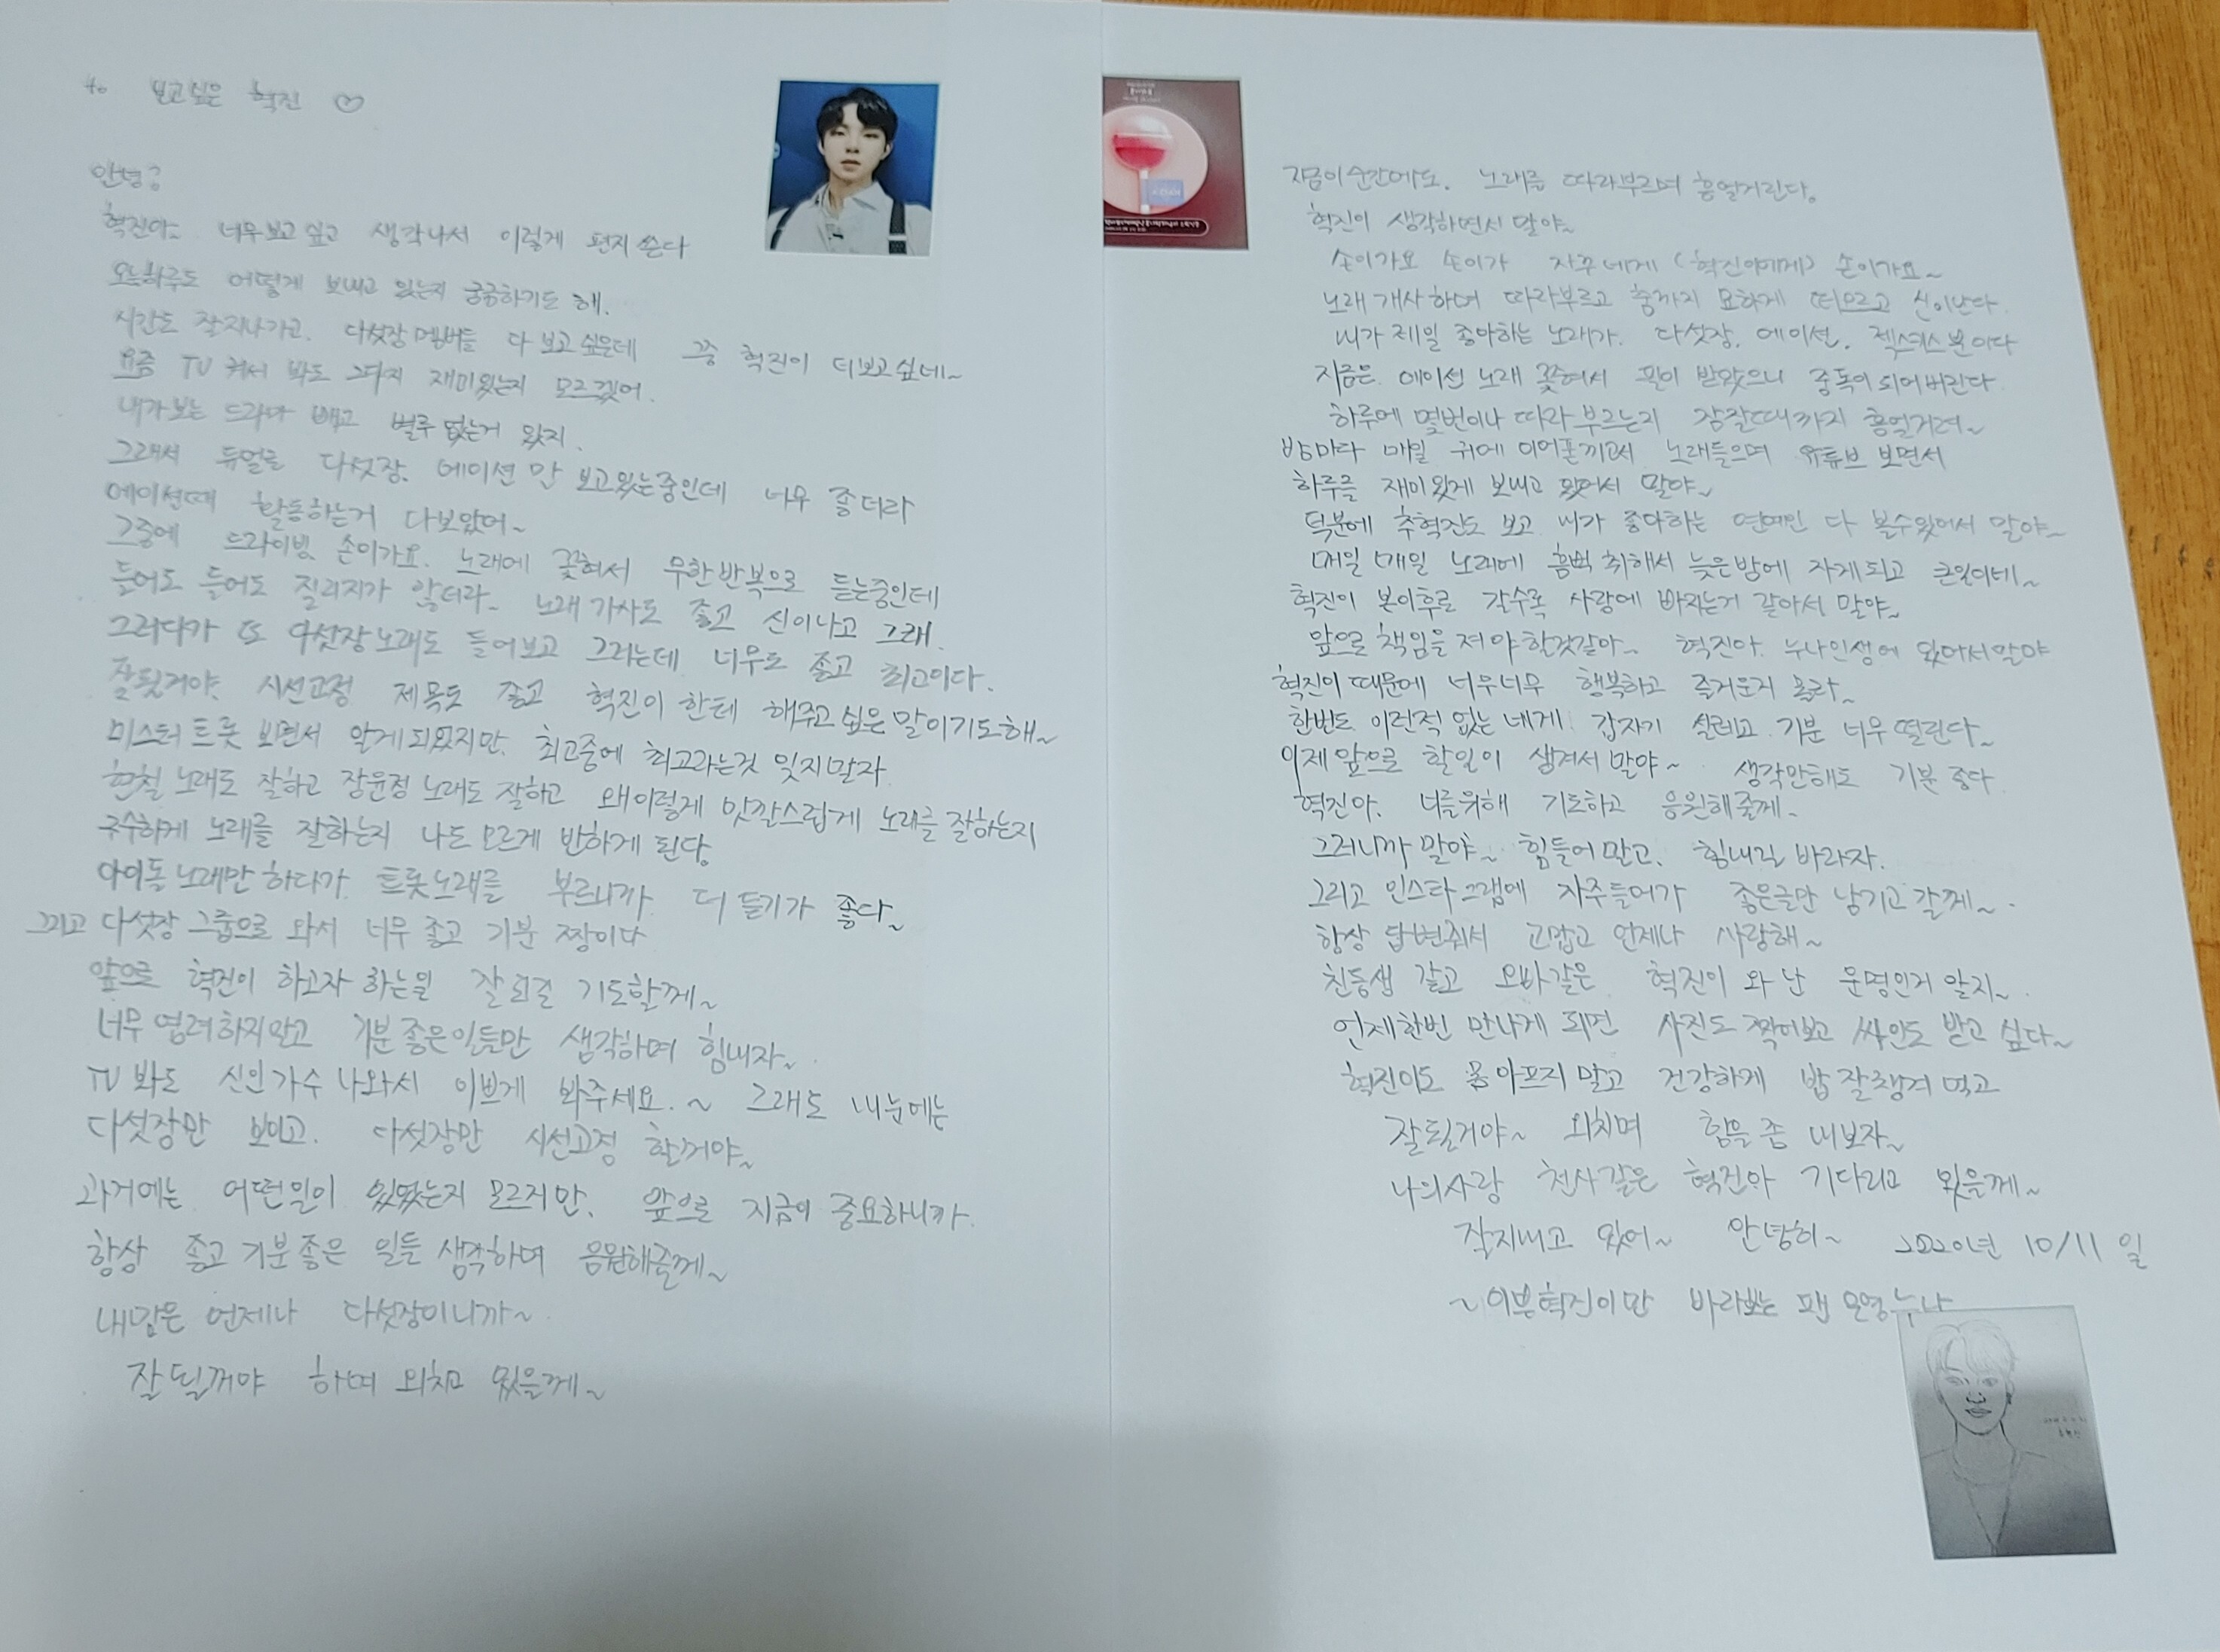 to 보고싶은 혁진 ♡
안녕
혁진아~ 너무보고싶고 생각나서 이렇게 편지쓴다
오늘하루도 어떻게 보내고 있는지 궁금하기도 해.
시간도 잘지나가고. 다섯장멤버들 다 보고싶은데 그중 혁진이 더보고싶네~
요즘 TV 켜서 봐도 그다지 재미있는지 모르겠어.
내가보는 드라마 빼고 별루 없는거 있지.
그래서 듀얼로 다섯장. 에이션만 보고있는중인데 너무 좋더라
에이션때 활동하는거 다보았어~
그중에 드라이빙, 손이가요. 노래에 꽂혀서 무한반복으로 듣는중인데
들어도 들어도 질리지가 않더라~ 노래가사도 좋고 신이나고 그래.
그러다가 또 다섯장노래도 들어보고 그러는데 너무도 좋고 최고이다.
잘될거야. 시선고정 제목도 좋고 혁진이한테 해주고싶은 말이기도해~
미스터트롯 보면서 알게되었지만. 최고중에 최고라는것 잊지말자.
현철노래도 잘하고 장윤정노래도 잘하고 왜이렇게 맛깔스럽게 노래를 잘하는지
구수하게 노래를 잘하는지 나도모르게 반하게 된다.
아이돌노래만 하다가 트롯노래를 부르니까 더 듣기가 좋다~
그리고 다섯장그룹으로 와서 너무좋고 기분 짱이다
앞으로 혁진이 하고자 하는일 잘되길 기도할께~
너무염려하지말고 기분좋은일들만 생각하며 힘내자~
TV봐도 신인가수나와서 이쁘게 봐주세요.~ 그래도 내눈에는
다섯장만 보이고. 다섯장만 시선고정 할꺼야~
과거에는 어떤일이 있었는지 모르지만. 앞으로 지금이 중요하니까.
항상 좋고 기분좋은 일들 생각하며 응원해줄께~
내맘은 언제나 다섯장이니까~
잘될꺼야 하며 외치고 있을께~
지금이순간에도. 노래를 따라부르며 흥얼거린다.
혁진이 생각하면서 말야~
손이가요 손이가 자꾸네게 (혁진아에게) 손이가요~
노래개사하며 따라부르고 춤까지 묘하게 떠오르고 신이난다.
내가 제일 좋아하는 노래가. 다섯장. 에이션. 젝스키스분이다
지금은 에이션노래 꽂혀서 필이 받았으니 중독이되어버린다.
하루에 몇번이나 따라부르는지 잠잘때까지 흥얼거려~
밤마다 매일 귀에 이어폰끼고서 노래들으며 유튜브 보면서
하루를 재미있게 보내고 있어서 말야~
덕분에 추혁진도 보고 내가 좋아하는 연예인 다 볼수있어서 말야~
매일매일 노래에 흠뻑취해서 늦은밤에 자게되고 큰일이네~
혁진이 본이후로 갈수록 사랑에 빠지는거 같아서 말야~
앞으로 책임을져야할것같아~ 혁진아. 누나인생에 있어서말야
혁진이때문에 너무너무 행복하고 즐거운지 몰라~
한번도 이런적없는네게 갑자기 설레고 기분 너무떨린다~
이제앞으로 할일이 생겨서말야~ 생각만해도 기분좋다
혁진아. 너를위해 기도하고 응원해줄께~
그러니까말야~ 힘들어말고. 힘내길 바라자.
그리고 인스타그램에 자주들어가 좋은글만 남기고갈께~.
항상 답변줘서 고맙고 언제나 사랑해~
친동생 같고 오빠같은 혁진이와 난 운명인거 알지~.
언제한번 만나게 되면 사진도 찍어보고 싸인도 받고 싶다~
혁진이도 몸아프지말고 건강하게 밥잘챙겨먹고
잘될거야~ 외치며 힘을좀 내보자~
나의사랑 천사같은 혁진아 기다리고 있을께~
잘지내고 있어~ 안녕히~ 2020년 10/11일
~이분혁진이만 바라보는 팬 모영누나